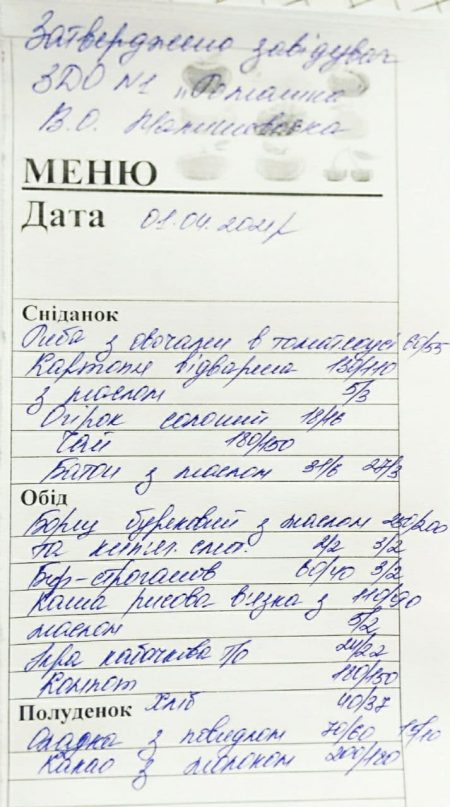 Затверджено завідувач
ЗДО №1 „Ромашка"
В.О.
МЕНЮ
Дата 01.04.2021р
Сніданок
Риба з овочами в томат.соусі 60/55
Картопля відварена 130/110
з маслом 5/3
Огірок солоний 18/16
Чай 180/150
Батон з маслом 31/6 27/3
Обід
Борщ буряковий з маслом 250/200
та кип'яч. смет. 2/2 3/2
Беф-строганов 60/40 3/2
Каша рисова в'язка з 110/90
маслом 5/2
Ікра кабачкова т/о 24/22
Компот 180/150
Полуденок Хліб 40/37
Оладка з повидлом 70/60 15/10
Какао з молоком 200/180